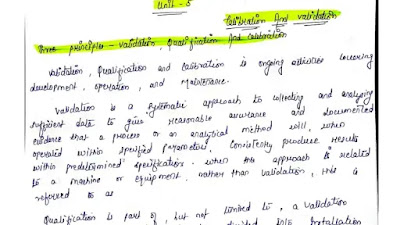 Unit - 5
Calibration And validation
Three principles - validation, Qualification And Calibration
validation, Qualification and Calibration is ongoing activities covering
development, operation, and Maintenance.
validation is a systematic approach to collecting and analyzing
sufficient data to give reasonable assurance and documented
evidence that a process or an analytical method will, when
operated within specified parameters, consistently produce results
within predetermined specification. when this approach is related
to a machine or equipment, rather than validation, this is
refereed to as
Qualification is part of, but not limited to, a validation
divided into Installation